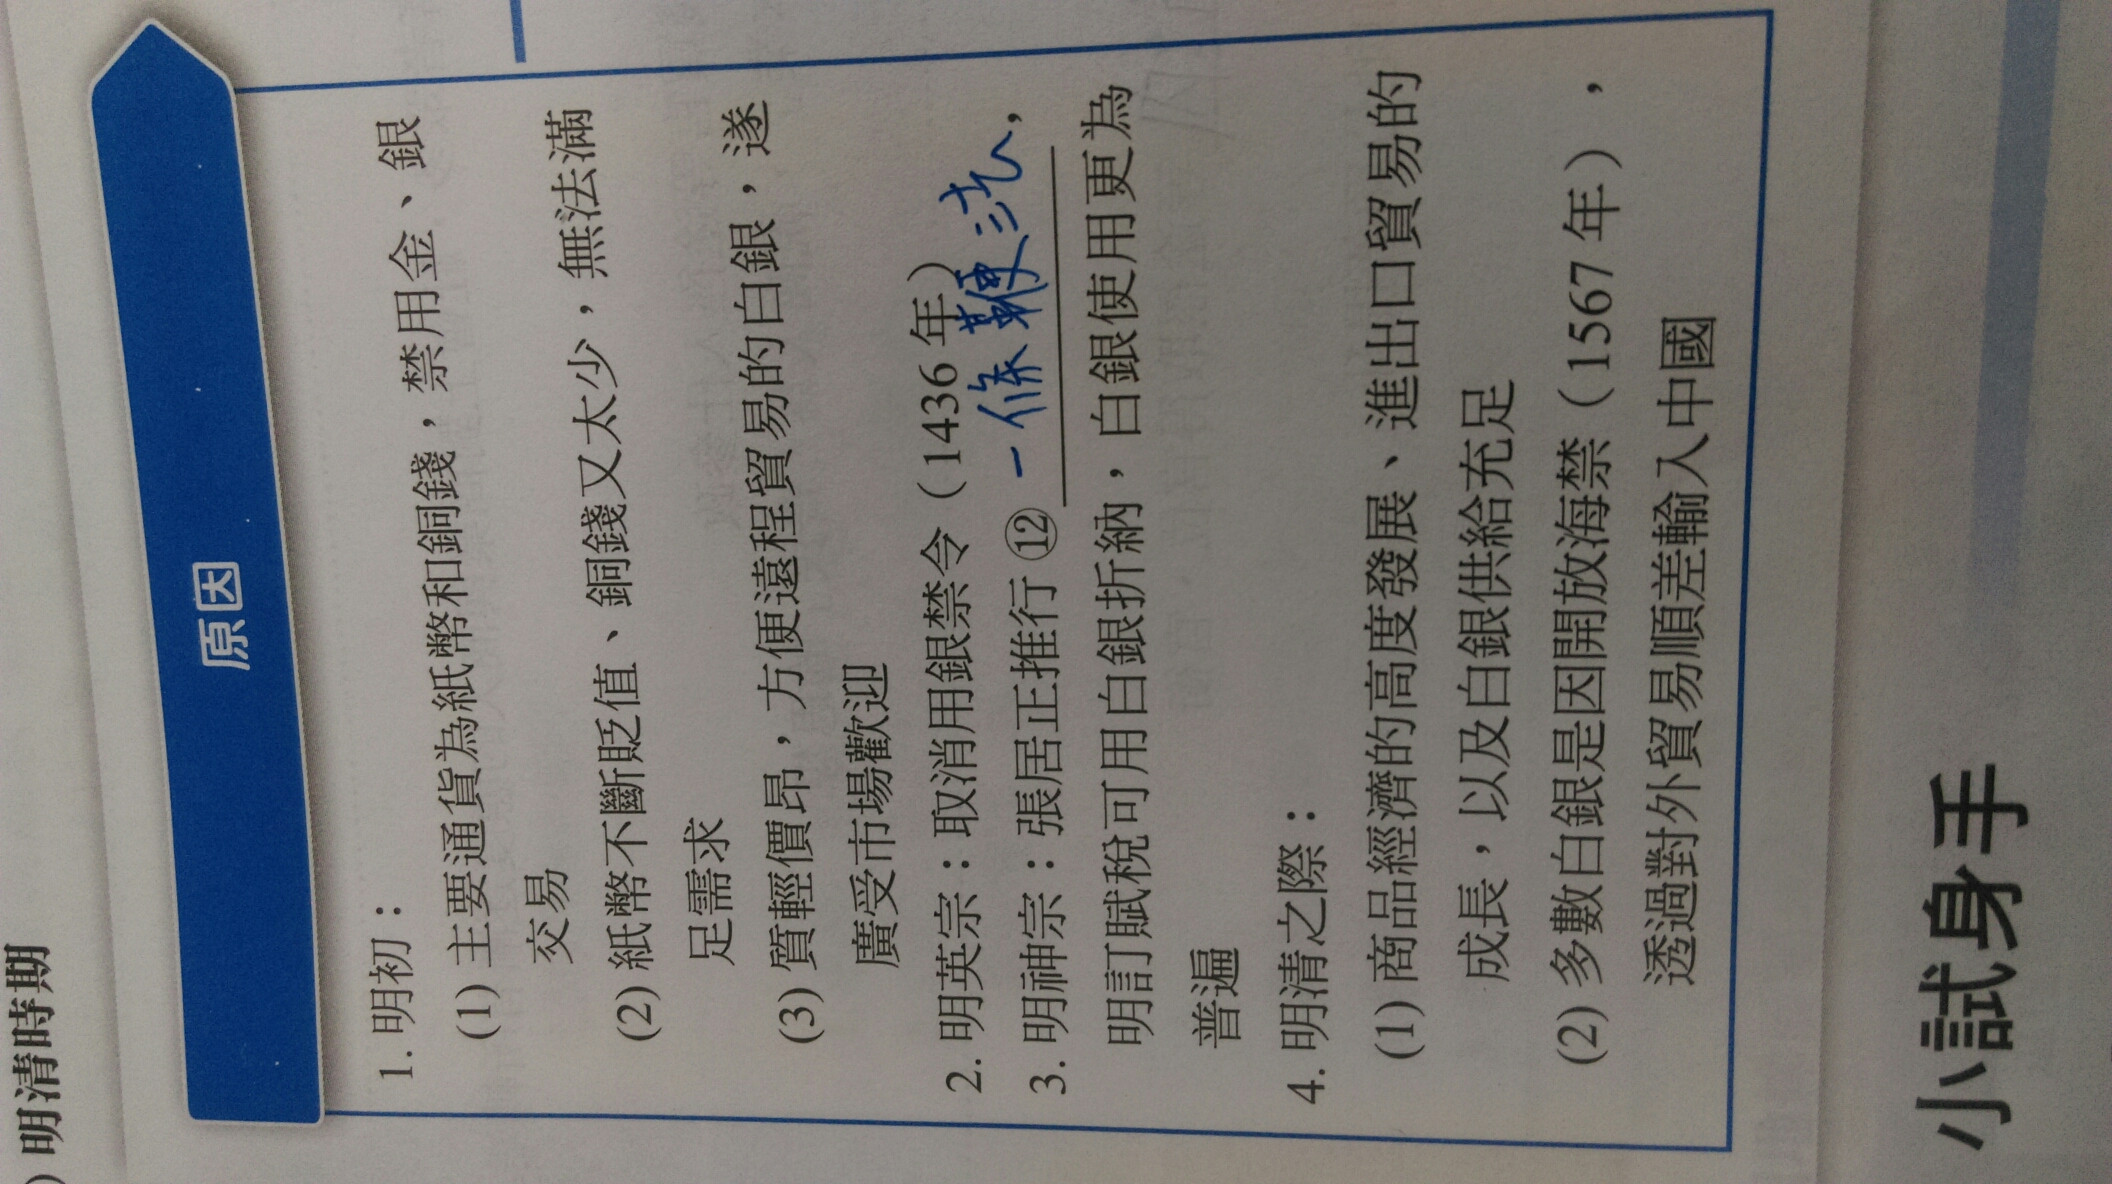 ) 明清時期
原因
1. 明初：
(1) 主要通貨為紙幣和銅錢，禁用金、銀
交易
(2) 紙幣不斷貶值、銅錢又太少，無法滿
足需求
(3) 質輕價昂，方便遠程貿易的白銀，遂
廣受市場歡迎
2. 明英宗：取消用銀禁令（1436 年）
3. 明神宗：張居正推行 ⑫ 一條鞭法，
明訂賦稅可用白銀折納，白銀使用更為
普遍
4. 明清之際：
(1) 商品經濟的高度發展、進出口貿易的
成長，以及白銀供給充足
(2) 多數白銀是因開放海禁（1567 年），
透過對外貿易順差輸入中國
小試身手